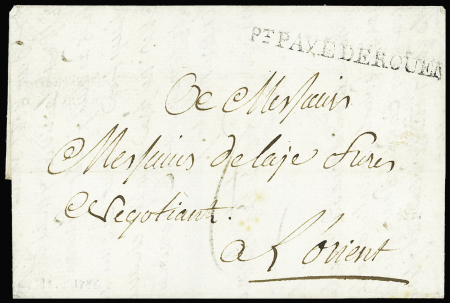 PT PAYÉ DE ROUEN
A Messieurs
Messieurs delaye freres
Negotiant.
a L'orient